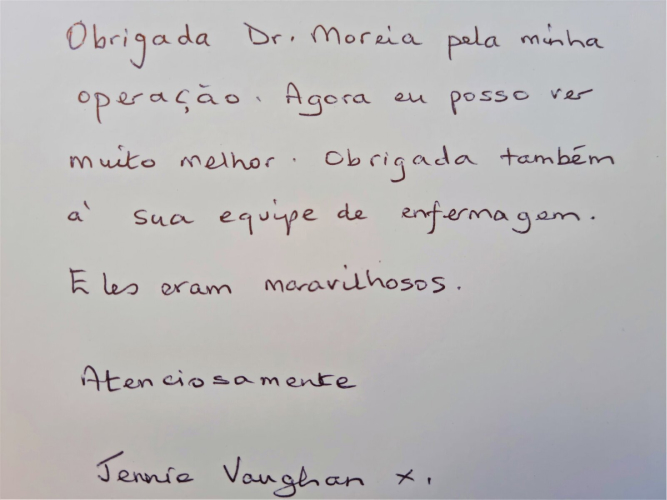 Obrigada Dr. Moreia pela minha
operação. Agora eu posso ver
muito melhor. Obrigada também
à sua equipe de enfermagem.
Eles eram maravilhosos.
Atenciosamente
Jennie Vaughan x.